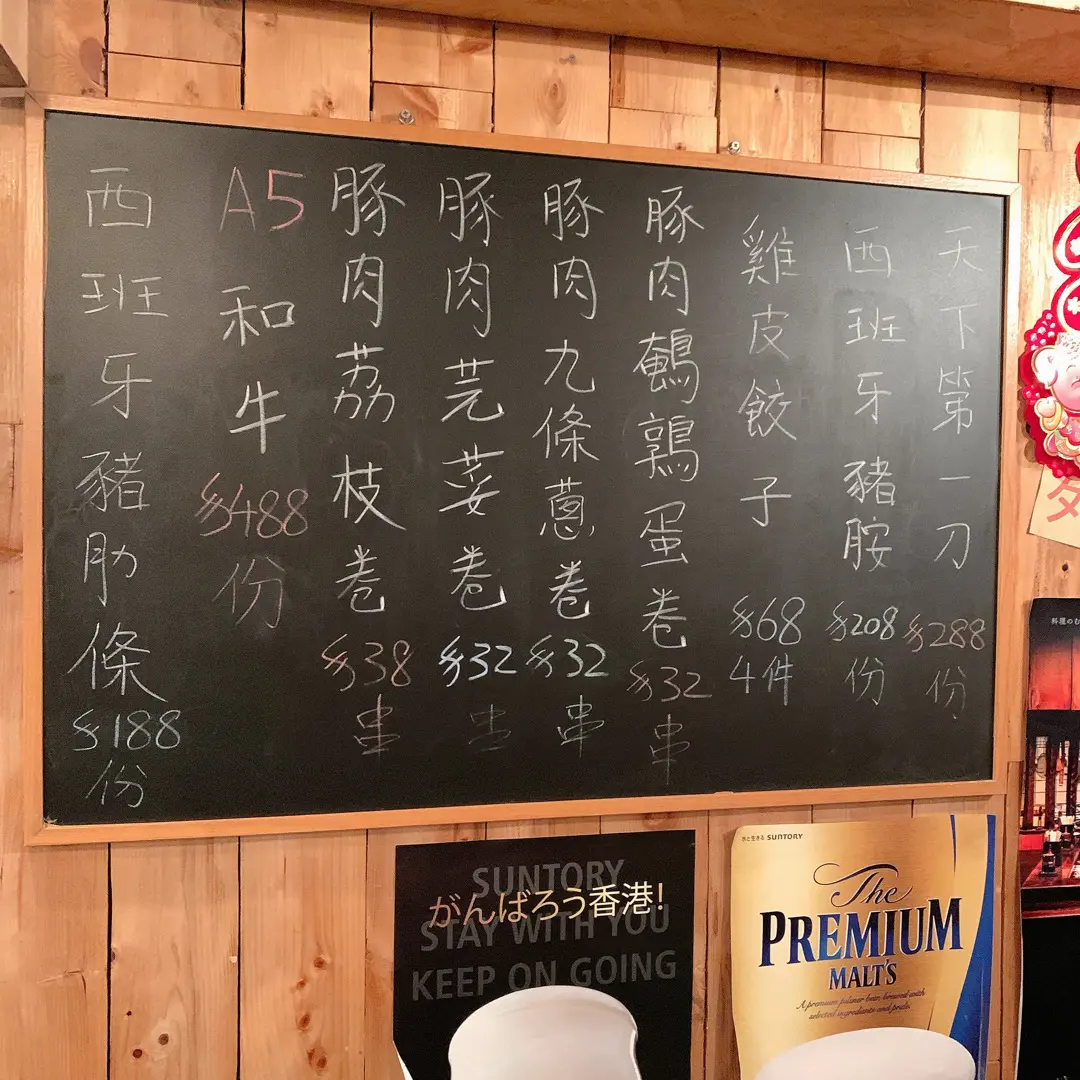 天下第一刀 $288 份
西班牙豬胺 $208 份
雞皮餃子 $68 4件
豚肉鵪鶉蛋卷 $32 串
豚肉九條蔥卷 $32 串
豚肉芫荽卷 $32 串
豚肉茘枝卷 $38 串
A5和牛 $488 份
西班牙豬肋條 $188 份
SUNTORY
がんばろう香港!
STAY WITH YOU
KEEP ON GOING
水と生きる SUNTORY
The
PREMIUM
MALT'S
A premium pilsner beer, brewed with
selected ingredients and pride.